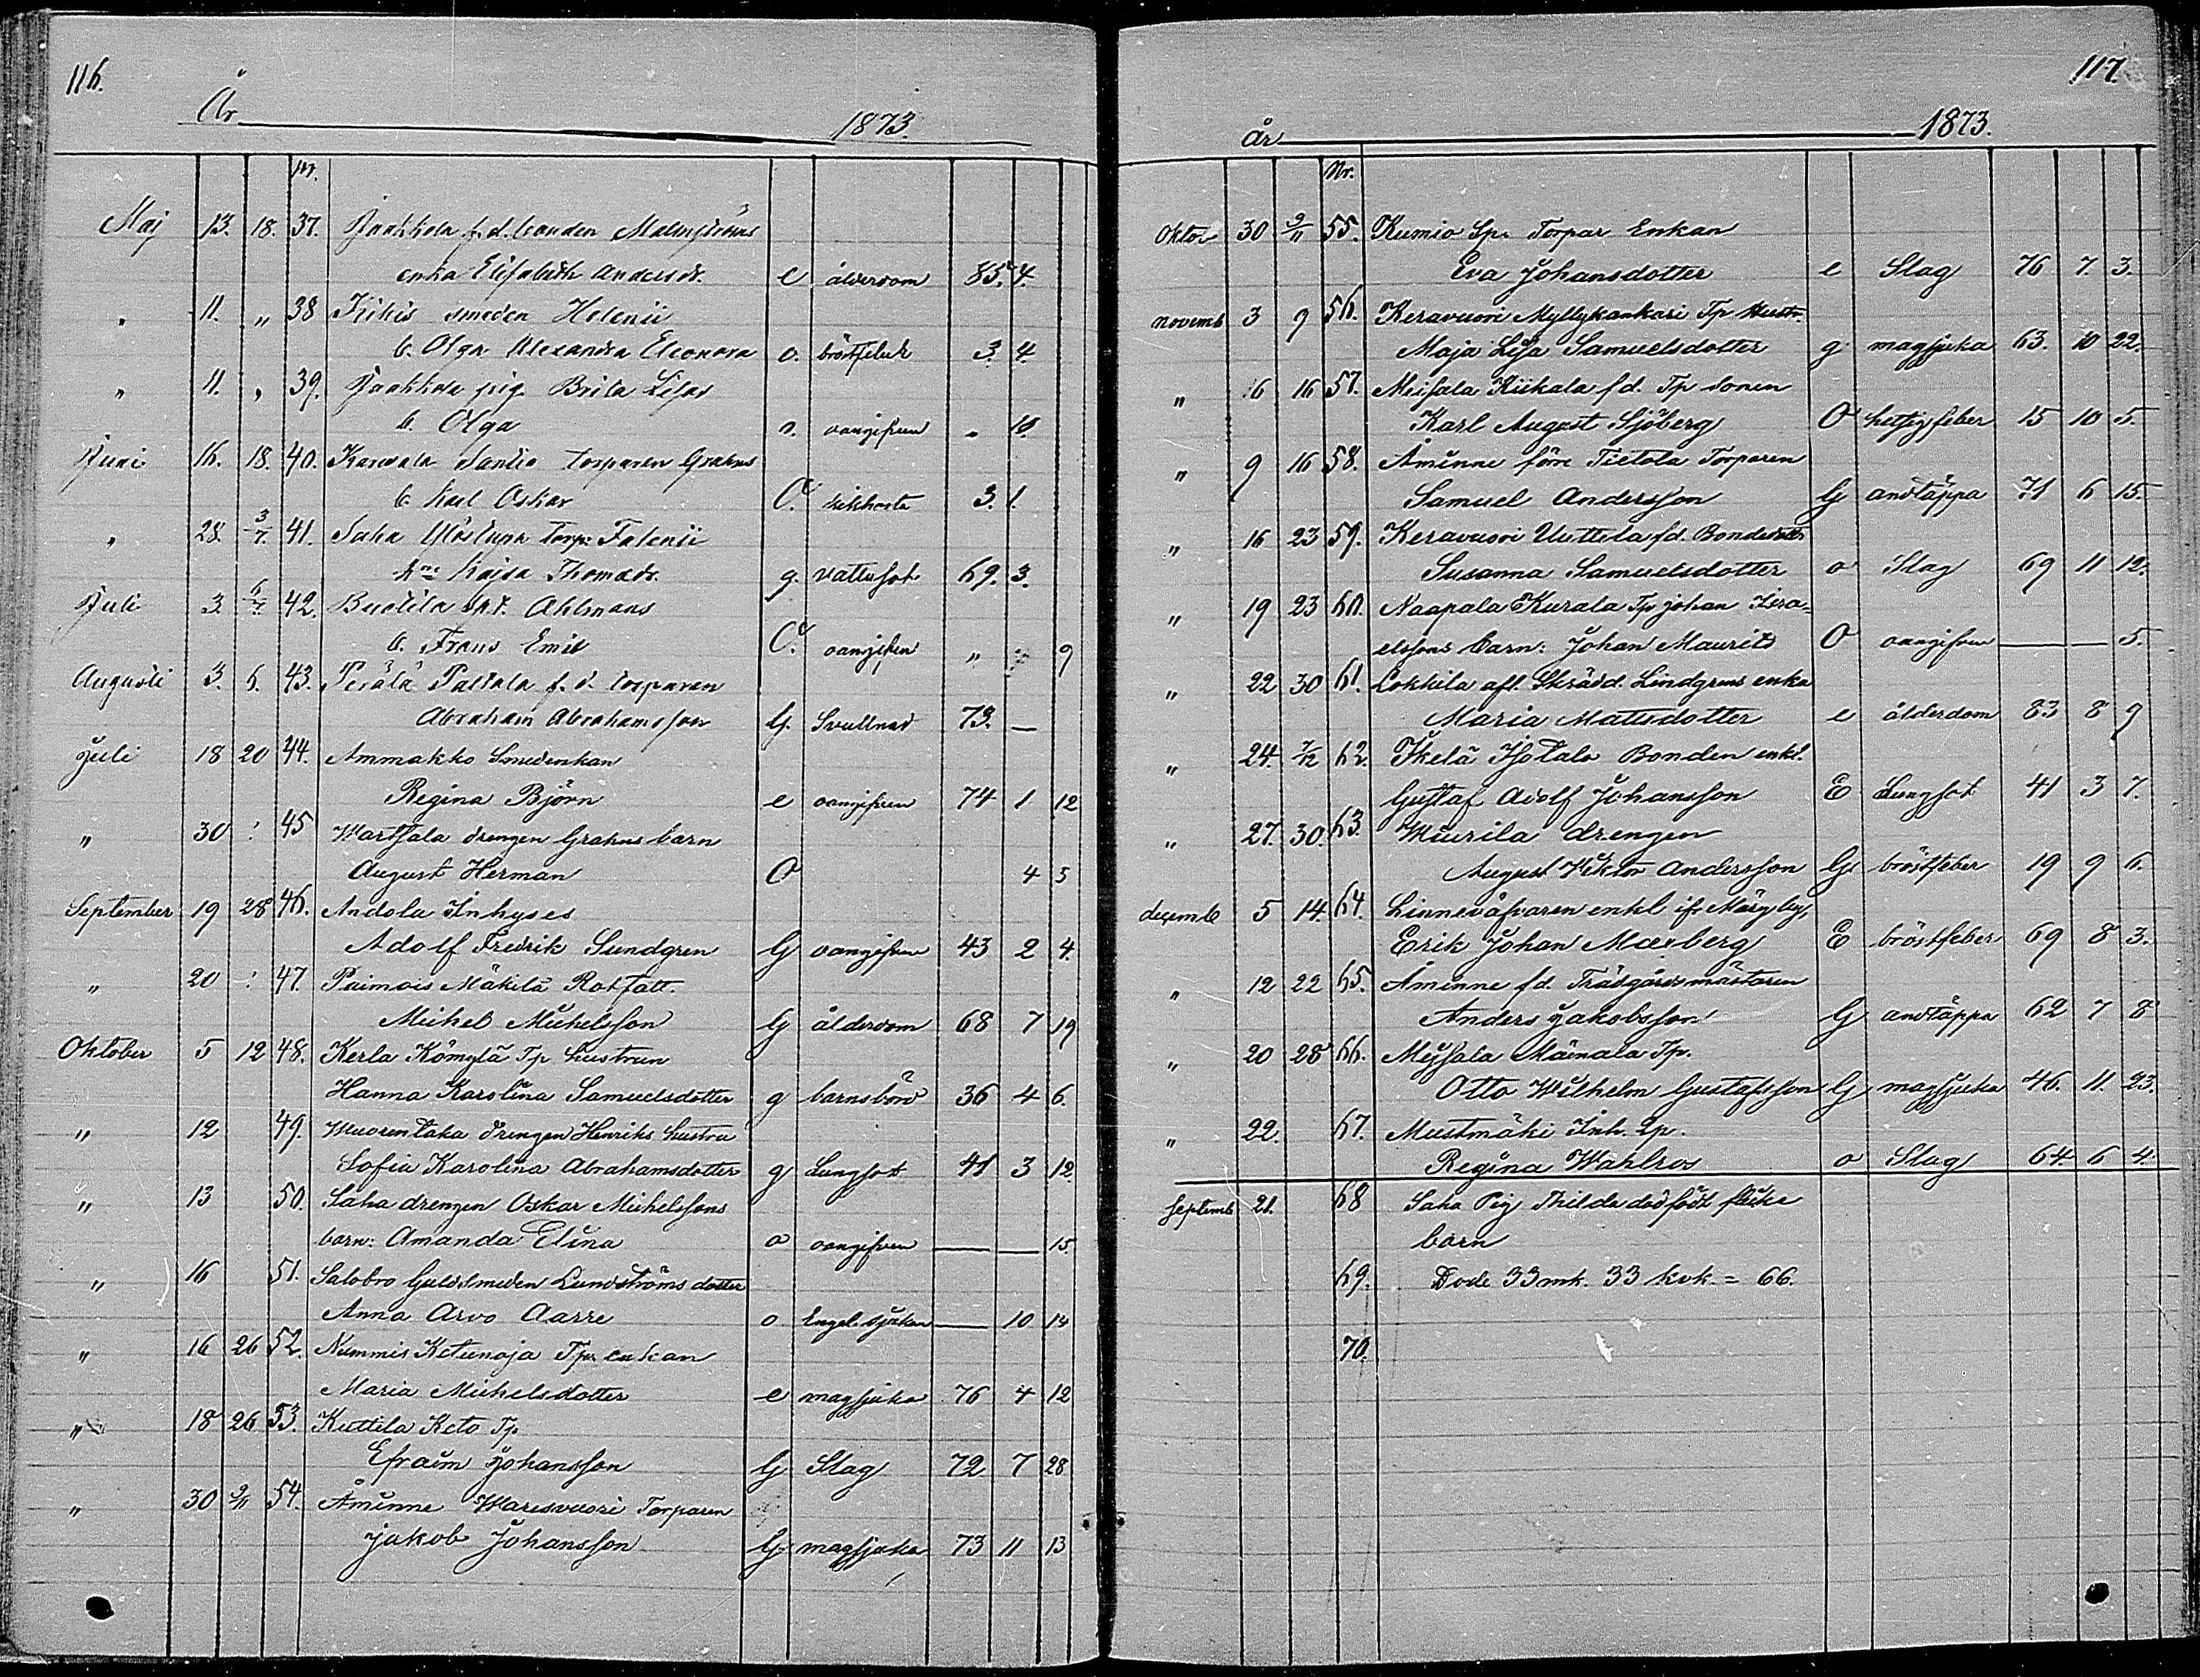 116.
År 1873.
Nr.
Maj 13. 18. 37. Paakkola f.d. bonden Malmströms
enka Elisabeth Andersdr. e ålderdom 85. 4.
" 11. " 38 Kikis smeden Helenii
b. Olga Alexandra Eleonora o. bröstfeber 3. 4
" 11. " 39. Paakkola pig. Brita Lisas
b. Olga o. oangifven " 10.
Juni 16. 18. 40. torparen Grahns
b. Karl Oskar O. kikhosta 3. 1.
" 28. 3/7. 41. Saha Yöstupa torp. Falenii
hu Kajsa Thomasdr. g. vattusot 69. 3.
Juli 3. 6/7. 42. Ahlmans
b. Frans Emil O. oangifven " 9
Augusti 3. 6. 43. Perälä Paltala f.d. torparen
Abraham Abrahamsson G. Svullnad 73. —
Juli 18 20 44. Ammakko Smedenkan
Regina Björn e oangifven 74 1 12
" 30 : 45 Wartsala drengen Grahns barn
August Herman O 4 5
September 19 28 46. Andola Inhyses
Adolf Fredrik Sundgren G oangifven 43 2 4.
" 20 : 47. Paimois Mäkilä Rotfatt.
Mickel Mickelsson G ålderdom 68 7 19
Oktober 5 12 48. Kerla Kömylä Tp hustrun
Hanna Karolina Samuelsdotter g barnsbörd 36 4 6.
" 12 49. Wuorentaka drengen Henriks hustru
Sofia Karolina Abrahamsdotter g Lungsot 41 3 12
" 13 50. Saha drengen Oskar Mickelssons
barn: Amanda Elina o oangifven — — 15
" 16 51. Salobro Guldsmeden Lundströms dotter
Anna Arvo Aarre o Engel. sjukan — 10 14
" 16 26 52. Nummis Ketunoja Tp enkan
Maria Mickelsdotter e magsjuka 76 4 12
" 18 26 53. Kuttila Keto Tp
Efraim Johansson G Slag 72 7 28
" 30 9/11 54. Åminne Waresvuori Torparen
Jakob Johansson G. magsjuka 73 11 13
117.
år 1873.
Nr.
Oktob 30 9/11 55. Kumio Sp. Torpar Enkan
Eva Johansdotter e Slag 76 7. 3.
novemb 3 9 56. Keravuori Myllykankari Tp Hustr.
Maja Lisa Samuelsdotter g magsjuka 63. 10 22.
" 6 16 57. Meisala Kiikala f.d. Tp sonen
Karl August Sjöberg O hettig feber 15 10 5.
" 9 16 58. Åminne förre Tietola Torparen
Samuel Andersson G andtäppa 71 6 15.
" 16 23 59. Keravuori Uuttila f.d. Bondedottr
Susanna Samuelsdotter o Slag 69 11 12.
" 19 23 60. Naapala Kurala Tp johan Isra=
elssons barn: Johan Maurits O oangifven — — 5.
" 22 30 61. Lokkila afl. Skrädd. Lindgrens enka
Maria Matsdotter e ålderdom 83 8 9
" 24. 7/12 62. Ikelä Isotalo Bonden enkl.
Gustaf Adolf Johansson E Lungsot 41 3 7.
" 27. 30. 63. Wuurila drengen
August Viktor Andersson G bröstfeber 19 9 6.
decemb 5 14. 64. Linneväfvaren enkl ifr
Erik Johan Moberg E bröstfeber 69 8 3.
" 12 22 65. Åminne f.d. Trädgårdsmästaren
Anders Jakobsson G andtäppa 62 7 8
" 20 28 66. Meisala Mäinala Tp.
Otto Wilhelm Gustafsson G magsjuka 46. 11. 23.
" 22. 67. Mustmäki Inh. Qp.
Regina Wahlros o Slag 64. 6 4.
Septemb 21. 68 Saha Pig Thilda dödfödt flicke
barn
69. Döde 33 mk. 33 kvk. = 66.
70.